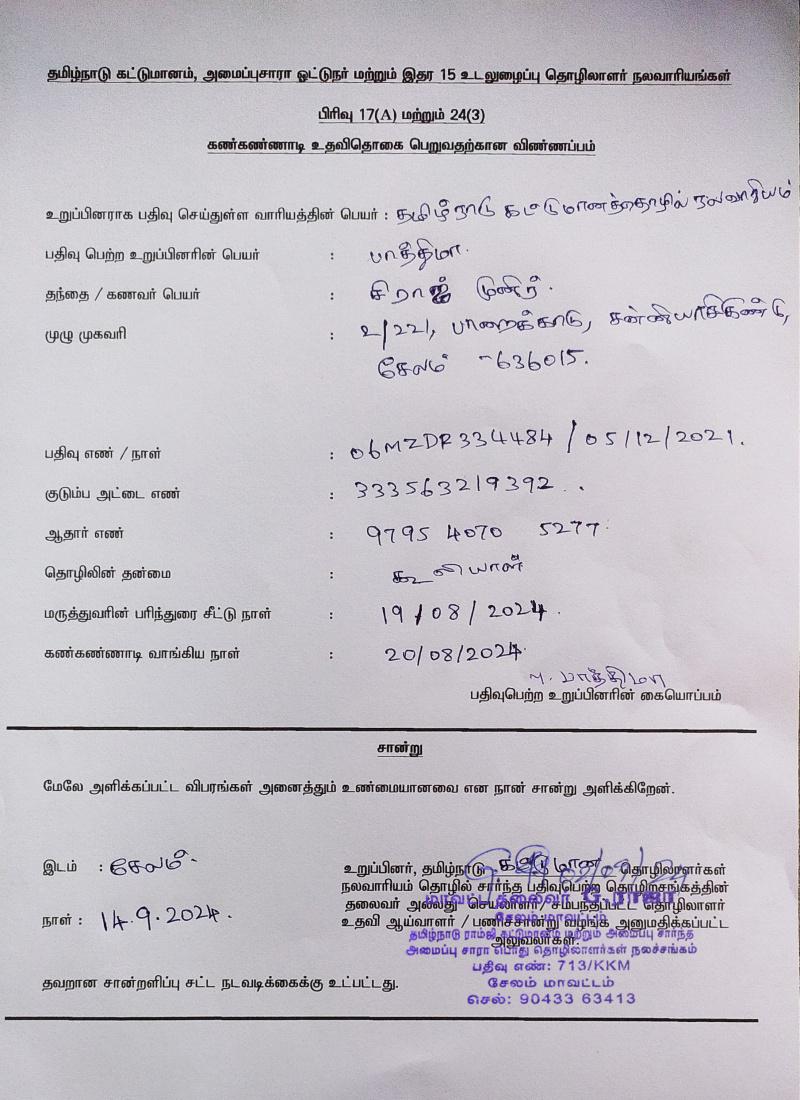 தமிழ்நாடு கட்டுமானம், அமைப்புசாரா ஓட்டுநர் மற்றும் இதர 15 உடலுழைப்பு தொழிலாளர் நலவாரியங்கள்
பிரிவு 17(A) மற்றும் 24(3)
கண்கண்ணாடி உதவிதொகை பெறுவதற்கான விண்ணப்பம்
உறுப்பினராக பதிவு செய்துள்ள வாரியத்தின் பெயர் : தமிழ்நாடு கட்டுமானத்தொழில் நலவாரியம்
பதிவு பெற்ற உறுப்பினரின் பெயர் : பாத்திமா.
தந்தை / கணவர் பெயர் : சிராஜ் முனிர்.
முழு முகவரி : 2/221, பாறைக்காடு, சன்னியாசிகுண்டு,
சேலம் -636015.
பதிவு எண் / நாள் : 06MZDR334484 / 05/12/2021.
குடும்ப அட்டை எண் : 333563219392 .
ஆதார் எண் : 9795 4070 5277
தொழிலின் தன்மை : கூலியாள்
மருத்துவரின் பரிந்துரை சீட்டு நாள் : 19/08/2024.
கண்கண்ணாடி வாங்கிய நாள் : 20/08/2024.
M. பாத்திமா
பதிவுபெற்ற உறுப்பினரின் கையொப்பம்
சான்று
மேலே அளிக்கப்பட்ட விபரங்கள் அனைத்தும் உண்மையானவை என நான் சான்று அளிக்கிறேன்.
இடம் : சேலம்.
உறுப்பினர், தமிழ்நாடு கட்டுமான தொழிலாளர்கள்
நலவாரியம் தொழில் சார்ந்த பதிவுபெற்ற தொழிற்சங்கத்தின்
தலைவர் அல்லது செயலாளர் / சம்பந்தப்பட்ட தொழிலாளர்
உதவி ஆய்வாளர் / பணிச்சான்று வழங்க அனுமதிக்கப்பட்ட
அலுவலர்கள்.
நாள் : 14.9.2024.
மாவட்ட தலைவர் G. ராஜா
சேலம் மாவட்டம்
தமிழ்நாடு ராம்ஜி கட்டுமானம் மற்றும் அமைப்பு சார்ந்த
அமைப்பு சாரா பொது தொழிலாளர்கள் நலச்சங்கம்
பதிவு எண்: 713/KKM
சேலம் மாவட்டம்
செல்: 90433 63413
தவறான சான்றளிப்பு சட்ட நடவடிக்கைக்கு உட்பட்டது.